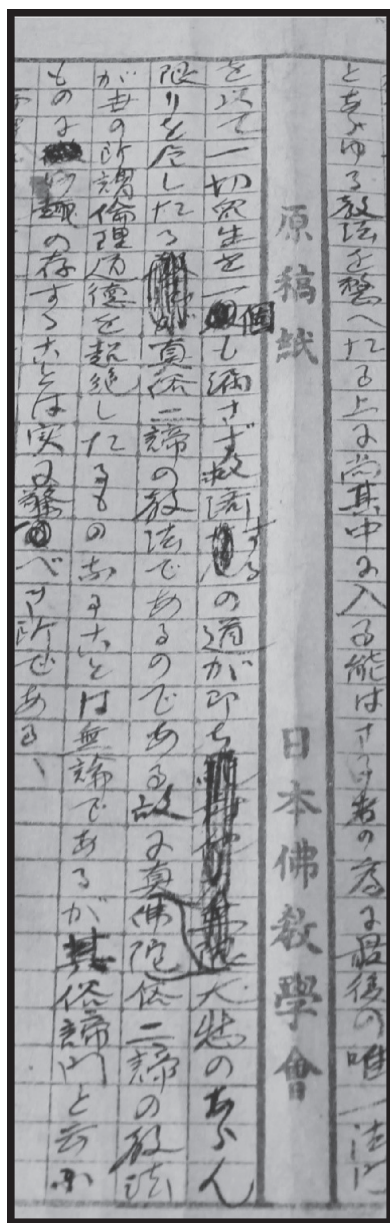 とあらゆる教法を整へたる上に尚其中に入る能はざる者の為に最後の唯一法門
原稿紙 日本佛教學會
を以て一切衆生を一個も漏さず救済するの道が即ち大悲のあらん
限りを尽したる真俗二諦の教法であるのである故に真俗二諦の教法
が世の所謂倫理道徳を超絶したるものなることは無論であるが其俗諦門と云ふ
ものに妙趣の存することは実に驚くべき所である、